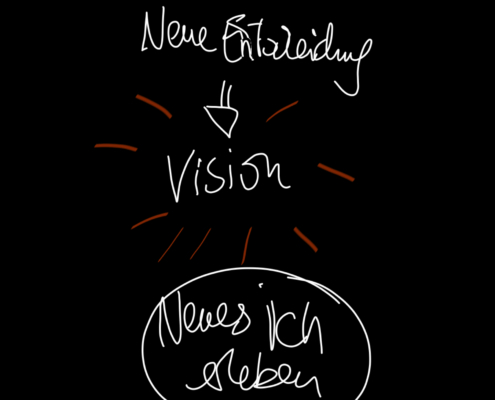 Neue Entscheidung
Vision
Neues ich
erleben